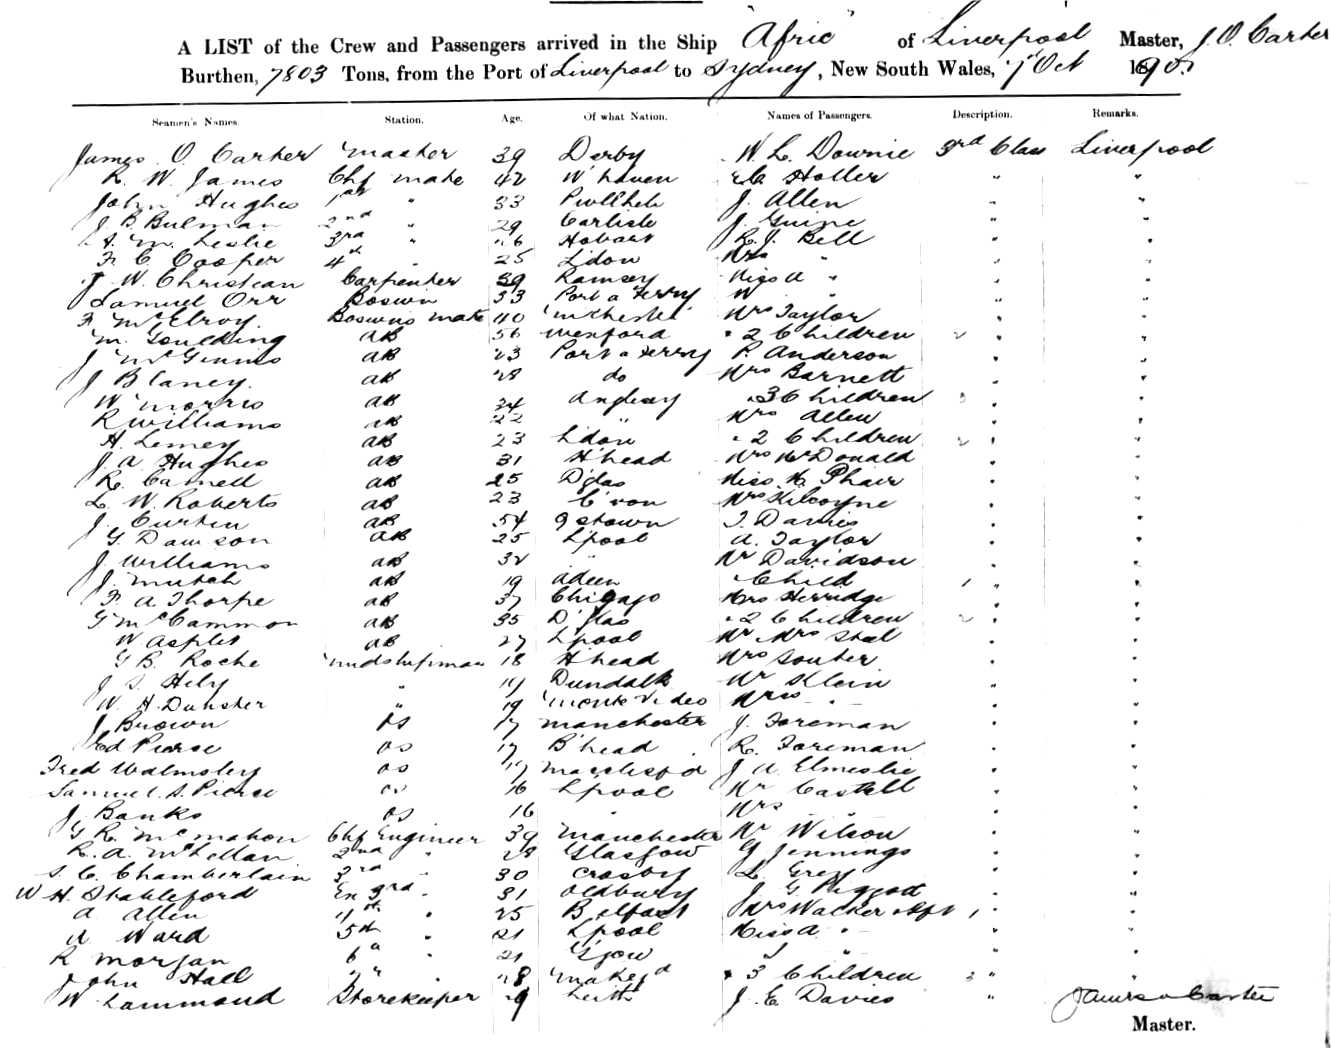 A LIST of the Crew and Passengers arrived in the Ship "Afric" of Liverpool Master, J. O. Carter
Burthen, 7803 Tons, from the Port of Liverpool to Sydney, New South Wales, 7 Oct 1905
Seamen's Names. Station. Age. Of what Nation. Names of Passengers. Description. Remarks.
James O Carter Master 39 Derby W. L. Downie 3rd Class Liverpool
R. W. James Chf mate 42 W'haven Holler " "
John Hughes 1st " 33 Pwllheli J. Allen " "
J. B. Bulman 2nd " 29 Carlisle J. Guine " "
M. Leslie 3rd " 26 Hobart R. J. Bell " "
F. C. Cooper 4th " 25 L'don Mrs " " "
J. W. Christian Carpenter 39 Ramsey Miss A " " "
Samuel Orr Boswn 33 Port a Ferry W " " "
F McElroy Boswns mate 40 M'chester Mrs Taylor " "
M. Goulding AB 56 Wexford " 2 Children 2 " "
J McGinnis AB 23 Port a Ferry P. Anderson " "
J Blaney AB 28 do Mrs Barnett " "
W Morris AB 34 Anglesey " 3 Children 3 " "
R Williams AB 22 " Mrs Allen " "
H. Lemey AB 23 L'don " 2 Children 2 " "
J. A. Hughes AB 31 H'head Mrs McDonald " "
R. Camell AB 25 D'glas Miss K Phair " "
L. W. Roberts AB 23 C'von Mrs Kilcoyne " "
J. Curtin AB 54 Q'stown T. Davies " "
G Dawson AB 25 L'pool A. Taylor " "
J Williams AB 32 " Mr Davidson " "
J. Mutch AB 19 Adeen " Child 1 " "
F. A. Thorpe AB 37 Chicago Mrs Herridge " "
G McCammon AB 35 D'glas " 2 Children 2 " "
W Asplet AB 27 L'pool Mr Mrs " "
G B. Roche Midshipman 18 H'head Mrs Souter " "
J S. Hely " 19 Dundalk Mr Klein " "
W. H. Dunster " 19 Monte Video Mrs " " "
J Brown OS 17 Manchester J. Foreman " "
Ed Pierse OS 17 B'head R. Foreman " "
Fred Walmsley OS 17 Macclesf'd J A Elmeslie " "
Samuel S. Pierse OS 16 L'pool Mr Castell " "
J Banks OS 16 " Mrs " " "
G R. McMahon Chf Engineer 39 Manchester Mr Wilson " "
R. A. McLellan 2nd " 28 Glasgow G Jennings " "
S. C. Chamberlain 3rd " 30 Crosby L. Grey " "
W H. Stableford Ex 3rd " 31 Oldbury J G Piggott " "
A Allen 4th " 25 Belfast Mrs Wacker & Inft 1 " "
A Ward 5th " 21 L'pool Miss A " " "
R Morgan 6th " 21 G'gow J " " "
John Hall 7th " 28 " 3 Children 3 " "
W Lammond Storekeeper 29 Leith J. E Davies "
James O Carter
Master.